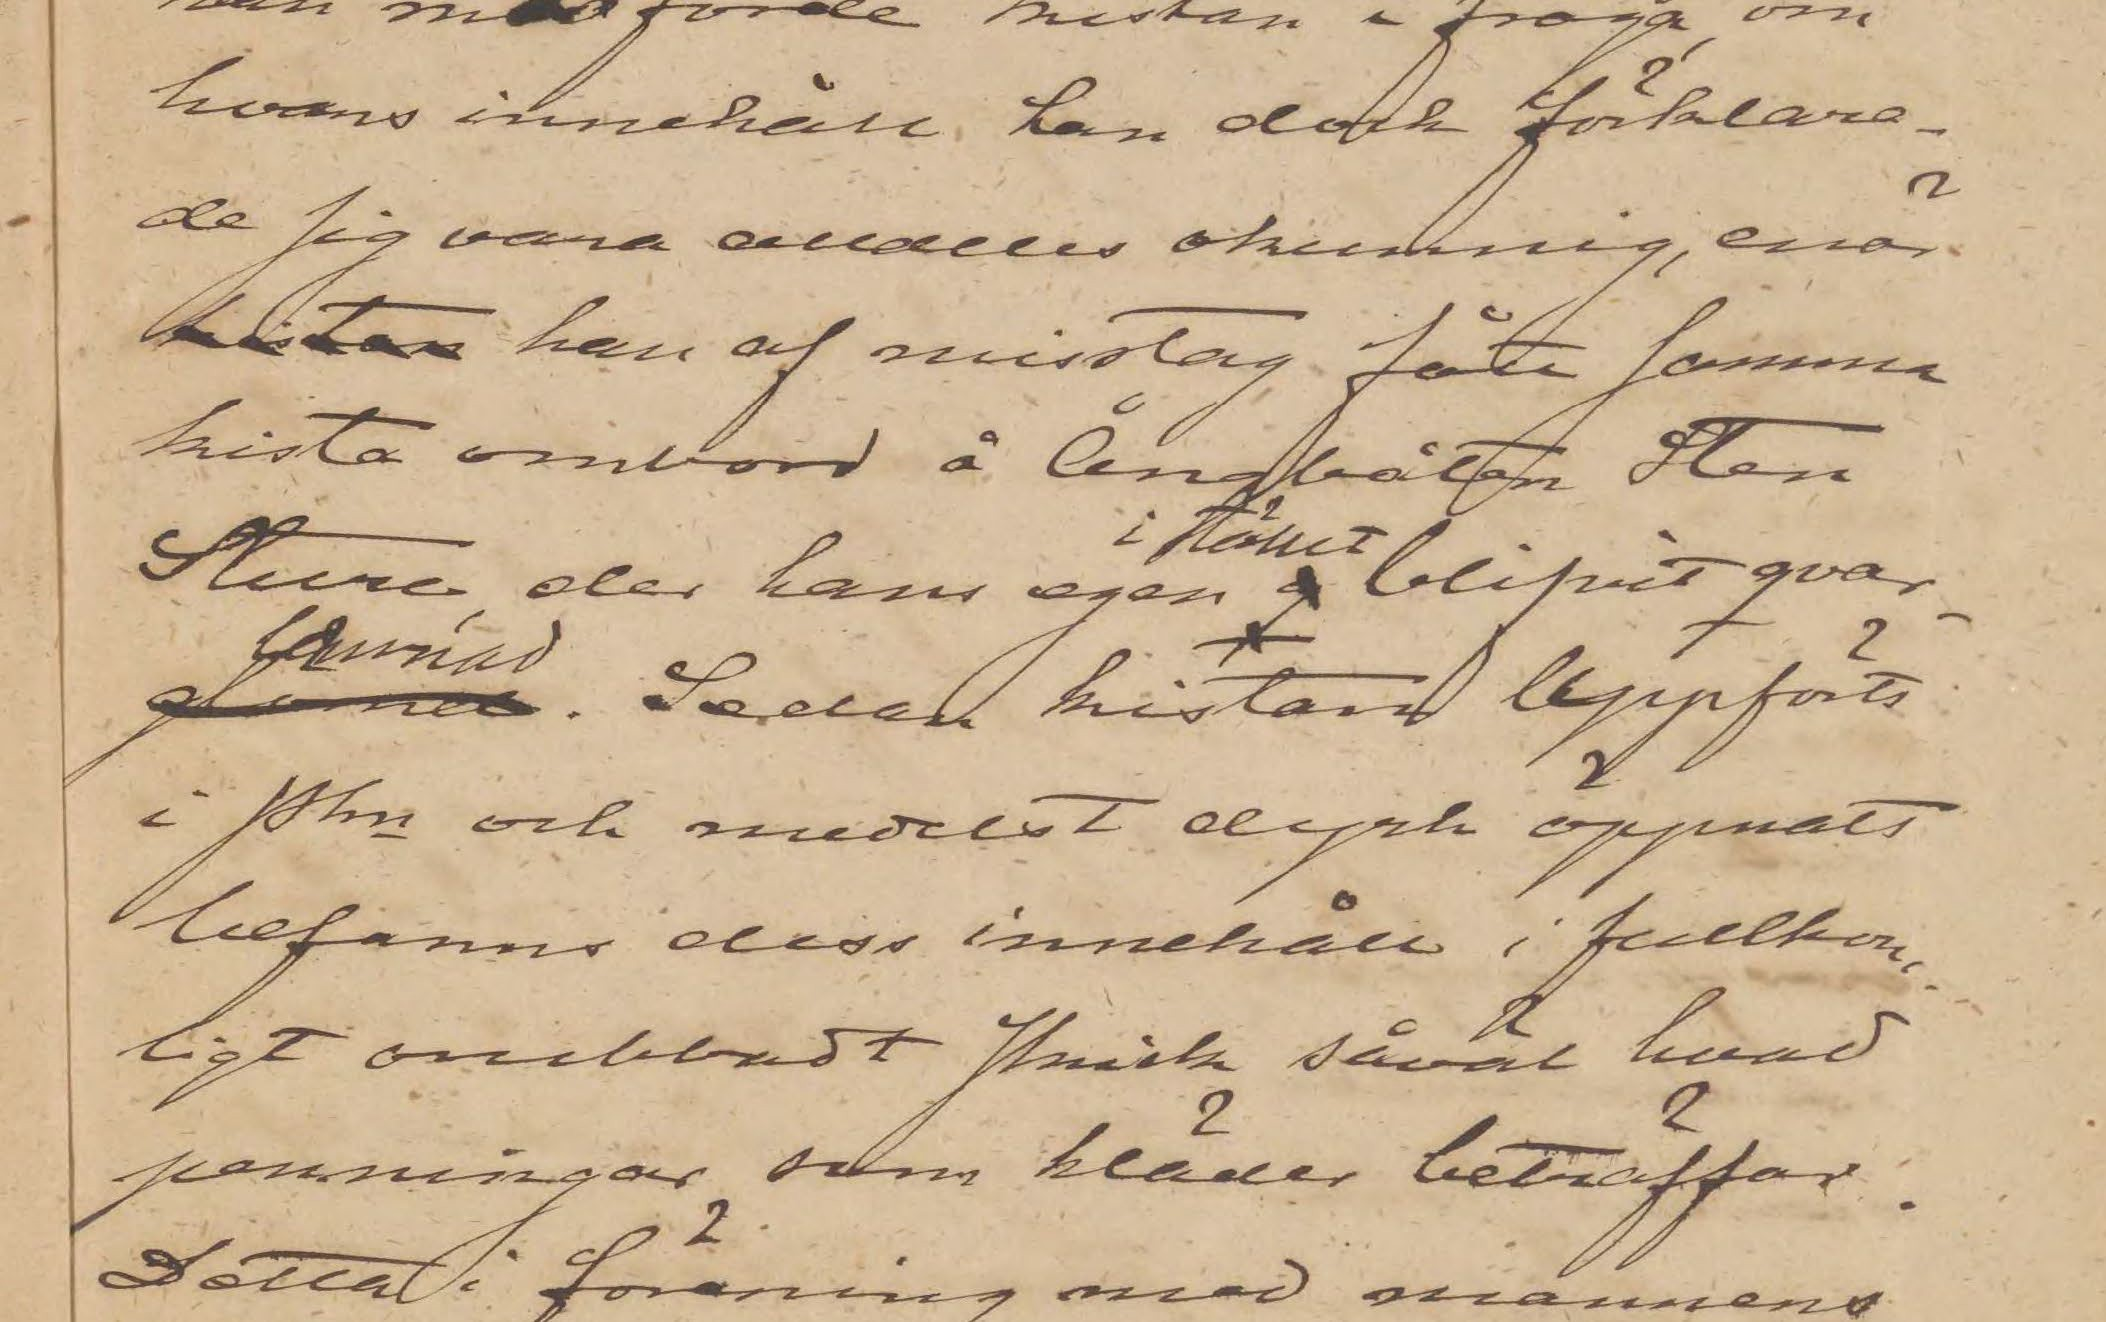 han medförde kistan i fråga, om
hvars innehåll han dock förklara-
de sig vara alldeles okunnig, enär
kistan han af misstag fått samma
kista ombord å Ångbåten Sten
Sture, der hans egen i stället blifvit qvar-
lämnad
glömd. Sedan kistan uppförts
i Sthm och medelst dyrk öppnats
befanns dess innehåll i fullkom-
ligt orubbadt skick såväl hvad
penningar som kläder beträffar.
Detta i förening med mannens